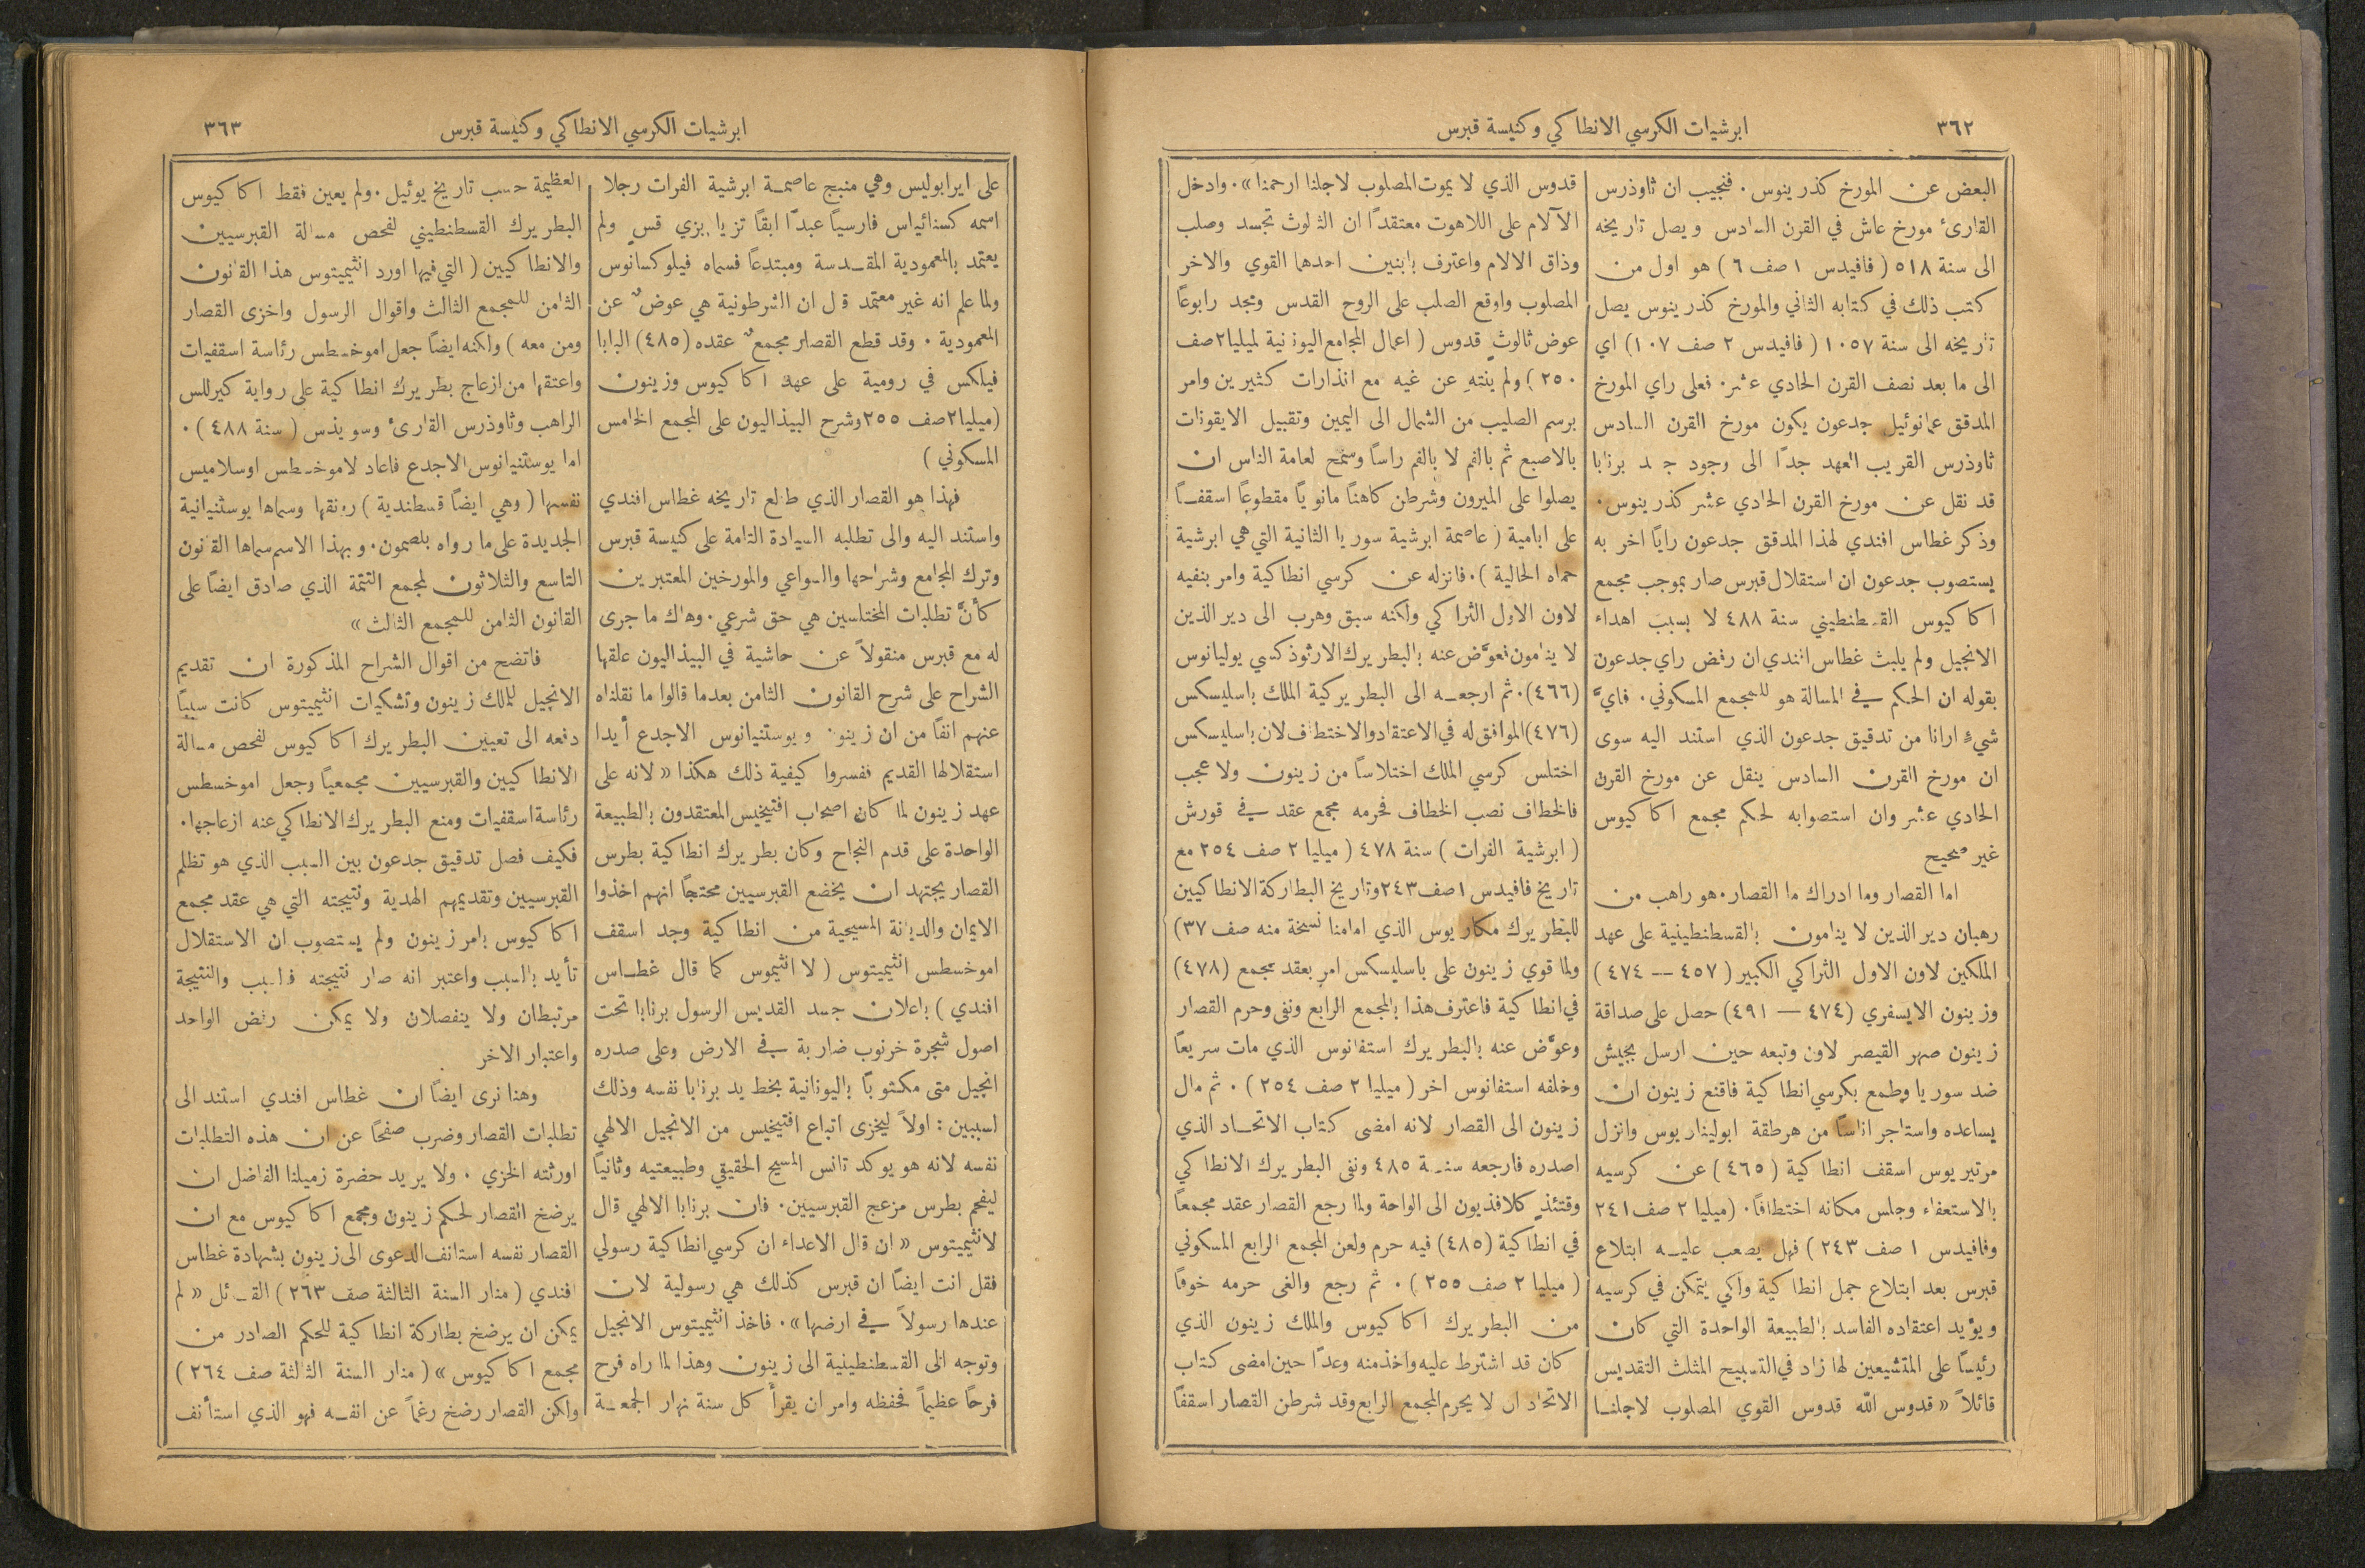 ٣٦٢
ابرشيات الكرسي الانطاكي وكنيسة قبرس
البعض عن المورخ كذرينوس. فنجيب ان ثاوذرس
القارئ مورخ عاش في القرن السادس ويصل تاريخه
الى سنة ٥١٨ ( فافيدس ١ صف ٦ ) هو اول من
كتب ذلك في كتابه الثاني والمورخ كذرينوس يصل
تاريخه الى سنة ١٠٥٧ ( فافيدس ٢ صف ١٠٧) اي
الى ما بعد نصف القرن الحادي عشر. فعلى راي المورخ
المدقق عمانوئيل جدعون يكون مورخ القرن السادس
ثاوذرس القريب العهد جدًا الى وجود جسد برنابا
قد نقل عن مورخ القرن الحادي عشر كذرينوس.
وذكر غطاس افندي لهذا المدقق جدعون رايًا اخر به
يستصوب جدعون ان استقلال قبرس صار بموجب مجمع
اكاكيوس القسطنطيني سنة ٤٨٨ لا بسبب اهداء
الانجيل ولم يلبث غطاس افندي ان رفض راي جدعون
بقوله ان الحكم في المسالة هو للمجمع المسكوني. فايَّ
شيءٍ ارانا من تدقيق جدعون الذي استند اليه سوى
ان مورخ القرن السادس ينقل عن مورخ القرن
الحادي عشر وان استصوابه لحكم مجمع اكاكيوس
غير صحيح
اما القصار وما ادراك ما القصار. هو راهب من
رهبان دير الذين لا ينامون بالقسطنطينية على عهد
الملكين لاون الاول الثراكي الكبير ( ٤٥٧ — ٤٧٤ )
وزينون الايسفري (٤٧٤ — ٤٩١) حصل على صداقة
زينون صهر القيصر لاون وتبعه حين ارسل بجيش
ضد سوريا وطمع بكرسي انطاكية فاقنع زينون ان
يساعده واستاجر اناسًا من هرطقة ابوليناريوس وانزل
مرتيريوس اسقف انطاكية (٤٦٥) عن كرسيه
بالاستعفاء وجلس مكانه اختطافًا. (ميليا ٢ صف ٢٤١
وفافيدس ١ صف ٢٤٣ ) فهل يصعب عليه ابتلاع
قبرس بعد ابتلاع جمل انطاكية ولكي يتمكن في كرسيه
ويؤيد اعتقاده الفاسد بالطبيعة الواحدة التي كان
رئيسًا على المتشيعين لها زاد في التسبيح المثلث التقديس
قائلاً « قدوس الله قدوس القوي المصلوب لاجلنا
قدوس الذي لا يموت المصلوب لاجلنا ارحمنا ». وادخل
الآلام على اللاهوت معتقدًا ان الثالوث تجسد وصلب
وذاق الالام واعترف بابنين احدهما القوي والاخر
المصلوب واوقع الصلب على الروح القدس ومجد رابوعًا
عوض ثالوثٍ قدوس ( اعمال المجامع اليونانية لميليا ٢ صف
٢٥٠ ) ولم ينتهِ عن غيه مع انذارات كثيرين وامر
برسم الصليب من الشمال الى اليمين وتقبيل الايقونات
بالاصبع ثم بالفم لا بالفم راسًا وسمح لعامة الناس ان
يصلوا على الميرون وشرطن كاهنًا مانويًا مقطوعًا اسقفًا
على ابامية ( عاصمة ابرشية سوريا الثانية التي هي ابرشية
حماه الحالية ). فانزله عن كرسي انطاكية وامر بنفيه
لاون الاول الثراكي ولكنه سبق وهرب الى دير الذين
لا ينامون فعوَّض عنه بالبطريرك الارثوذكسي يوليانوس
(٤٦٦). ثم ارجعه الى البطريركية الملك باسليسكس
(٤٧٦) الموافق له في الاعتقاد والاختطاف لان باسليسكس
اختلس كرسي الملك اختلاسًا من زينون ولا عجب
فالخطاف نصب الخطاف فحرمه مجمع عقد في قورش
( ابرشية الفرات ) سنة ٤٧٨ ( ميليا ٢ صف ٢٥٤ مع
تاريخ فافيدس ١ صف ٢٤٣ وتاريخ البطاركة الانطاكيين
للبطريرك مكاريوس الذي امامنا نسخة منه صف ٣٧)
ولما قوي زينون على باسليسكس امر بعقد مجمع (٤٧٨)
في انطاكية فاعترف هذا بالمجمع الرابع ونفى وحرم القصار
وعوَّض عنه بالبطريرك استفانوس الذي مات سريعًا
وخلفه استفانوس اخر ( ميليا ٢ صف ٢٥٤ ). ثم مال
زينون الى القصار لانه امضى كتاب الاتحاد الذي
اصدره فارجعه سنة ٤٨٥ ونفى البطريرك الانطاكي
وقتئذٍ كلافذيون الى الواحة ولما رجع القصار عقد مجمعًا
في انطاكية (٤٨٥) فيه حرم ولعن المجمع الرابع المسكوني
( ميليا ٢ صف ٢٥٥ ). ثم رجع والغى حرمه خوفًا
من البطريرك اكاكيوس والملك زينون الذي
كان قد اشترط عليه واخذ منه وعدًا حين امضى كتاب
الاتحاد ان لا يحرم المجمع الرابع وقد شرطن القصار اسقفًا
ابرشيات الكرسي الانطاكي وكنيسة قبرس
٣٦٣
على ايرابوليس وهي منبج عاصمة ابرشية الفرات رجلا
اسمه كسنائياس فارسيًا عبدًا ابقًا تزيا بزي قس ولم
يعتمد بالمعمودية المقدسة ومبتدعًا فسماه فيلوكسانوس
ولما علم انه غير معتمد قال ان الشرطونية هي عوضٌ عن
المعمودية. وقد قطع القصار مجمعٌ عقده (٤٨٥) البابا
فيلكس في رومية على عهد اكاكيوس وزينون
(ميليا ٢ صف ٢٥٥ وشرح البيذاليون على المجمع الخامس
المسكوني )
فهذا هو القصار الذي طالع تاريخه غطاس افندي
واستند اليه والى تطلبه السيادة التامة على كنيسة قبرس
وترك المجامع وشراحها والسواعي والمورخين المعتبرين
كأنَّ تطلبات المختلسين هي حق شرعي. وهاك ما جرى
له مع قبرس منقولاً عن حاشية في البيذاليون علقها
الشراح على شرح القانون الثامن بعدما قالوا ما نقلناه
عنهم انفًا من ان زينون ويوستنيانوس الاجدع أيدا
استقلالها القديم ففسروا كيفية ذلك هكذا « لانه على
عهد زينون لما كان اصحاب افتيخيس المعتقدون بالطبيعة
الواحدة على قدم النجاح وكان بطريرك انطاكية بطرس
القصار يجتهد ان يخضع القبرسيين محتجًا انهم اخذوا
الايمان والديانة المسيحية من انطاكية وجد اسقف
اموخسطس انثيميتوس ( لا انثيموس كما قال غطاس
افندي ) باعلان جسد القديس الرسول برنابا تحت
اصول شجرة خرنوب ضاربة في الارض وعلى صدره
انجيل متى مكتوبًا باليونانية بخط يد برنابا نفسه وذلك
لسببين : اولاً ليخزى اتباع افتيخيس من الانجيل الالهي
نفسه لانه هو يوكد تانس المسيح الحقيقي وطبيعتيه وثانيًا
ليفحم بطرس مزعج القبرسيين. فان برنابا الالهي قال
لانثيميتوس « ان قال الاعداء ان كرسي انطاكية رسولي
فقل انت ايضًا ان قبرس كذلك هي رسولية لان
عندها رسولاً في ارضها ». فاخذ انثيميتوس الانجيل
وتوجه الى القسطنطينية الى زينون وهذا لما راه فرح
فرحًا عظيمًا فحفظه وامر ان يقرأ كل سنة نهار الجمعة
العظيمة حسب تاريخ يوئيل. ولم يعين فقط اكاكيوس
البطريرك القسطنطيني لفحص مسالة القبرسيين
والانطاكيين ( التي فيها اورد انثيميتوس هذا القانون
الثامن للمجمع الثالث واقوال الرسول واخزى القصار
ومن معه ) ولكنه ايضًا جعل اموخسطس رئاسة اسقفيات
واعتقها من ازعاج بطريرك انطاكية على رواية كيرللس
الراهب وثاوذرس القارئ وسويذس ( سنة ٤٨٨ ).
اما يوستنيانوس الاجدع فاعاد لاموخسطس اوسلاميس
نفسها ( وهي ايضًا قسطندية ) رونقها وسماها يوستنيانية
الجديدة على ما رواه بلصمون. وبهذا الاسم سماها القانون
التاسع والثلاثون لمجمع التتمة الذي صادق ايضًا على
القانون الثامن للمجمع الثالث »
فاتضح من اقوال الشراح المذكورة ان تقديم
الانجيل للملك زينون وتشكيات انثيميتوس كانت سببًا
دفعه الى تعيين البطريرك اكاكيوس لفحص مسالة
الانطاكيين والقبرسيين مجمعيًا وجعل اموخسطس
رئاسة اسقفيات ومنع البطريرك الانطاكي عنه ازعاجها.
فكيف فصل تدقيق جدعون بين السبب الذي هو تظلم
القبرسيين وتقديمهم الهدية ونتيجته التي هي عقد مجمع
اكاكيوس بامر زينون ولم يستصوب ان الاستقلال
تأيد بالسبب واعتبر انه صار نتيجته فالسبب والنتيجة
مرتبطان ولا ينفصلان ولا يمكن رفض الواحد
واعتبار الاخر
وهنا نرى ايضًا ان غطاس افندي استند الى
تطلبات القصار وضرب صفحًا عن ان هذه التطلبات
اورثته الخزي. ولا يريد حضرة زميلنا الفاضل ان
يرضخ القصار لحكم زينون ومجمع اكاكيوس مع ان
القصار نفسه استانف الدعوى الى زينون بشهادة غطاس
افندي ( منار السنة الثالثة صف ٢٦٣ ) القائل « لم
يمكن ان يرضخ بطاركة انطاكية للحكم الصادر من
مجمع اكاكيوس » ( منار السنة الثالثة صف ٢٦٤ )
ولكن القصار رضخ رغمًا عن انفه فهو الذي استأنف